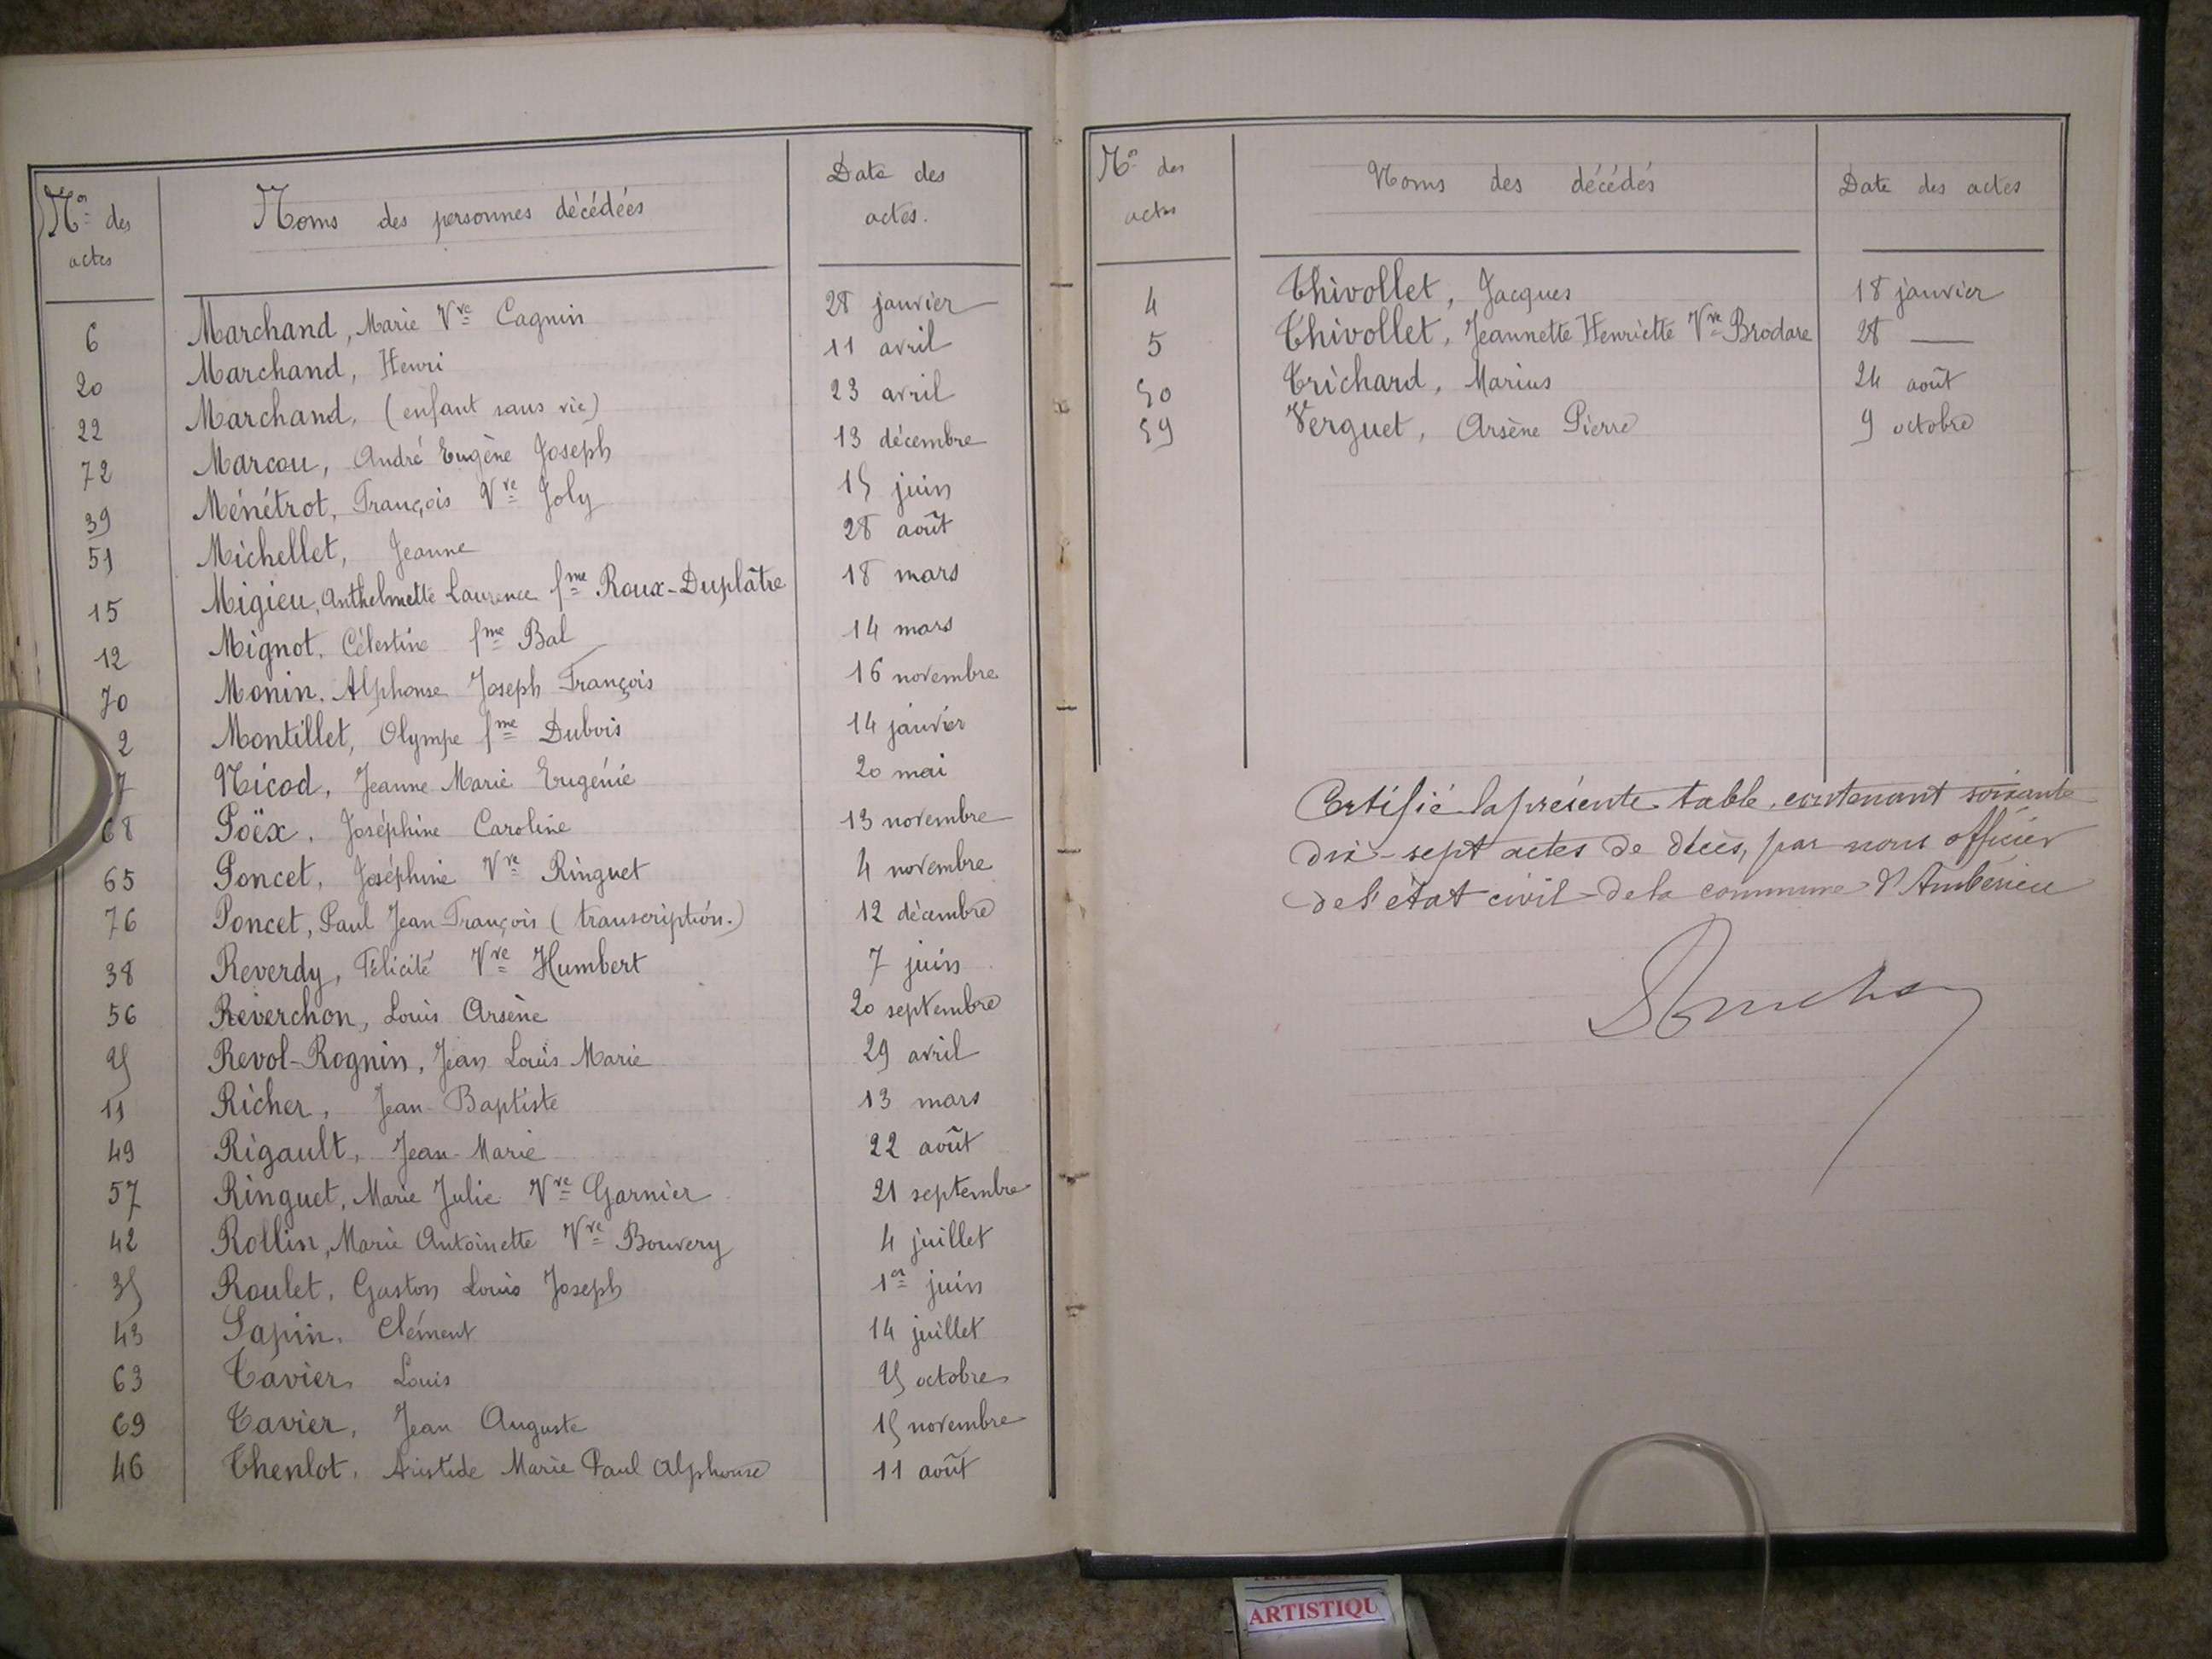 Nos des actes | Noms des personnes décédées | Date des actes.
6 Marchand, Marie Vve Cagnin 28 janvier
20 Marchand, Henri 11 avril
22 Marchand, (enfant sans vie) 23 avril
72 Marcou, André Eugène Joseph 13 décembre
39 Ménétrot, François Vve Joly 15 juin
51 Michellet, Jeanne 28 août
15 Migieu, Anthelmette Laurence fme Roux-Duplâtre 18 mars
12 Mignot, Célestine fme Bal 14 mars
70 Monin. Alphonse Joseph François 16 novembre
2 Montillet, Olympe fme Dubois 14 janvier
7 Nicod, Jeanne Marie Eugénie 20 mai
68 Poëx, Joséphine Caroline 13 novembre
65 Poncet, Joséphine Vve Ringuet 4 novembre
76 Poncet, Paul Jean-François (transcription.) 12 décembre
38 Reverdy, Félicité Vve Humbert 7 juin
56 Reverchon, Louis Arsène 20 septembre
25 Revol-Rognin, Jean Louis Marie 29 avril
11 Richer, Jean-Baptiste 13 mars
49 Rigault, Jean-Marie 22 août
57 Ringuet, Marie Julie Vve Garnier 21 septembre
42 Rollin, Marie Antoinette Vve Bouvery 4 juillet
35 Roulet, Gaston Louis Joseph 1er juin
43 Sapin, Clément 14 juillet
63 Tavier Louis 25 octobre
69 Tavier, Jean Auguste 15 novembre
46 Thenlot, Aristide Marie Paul Alphonse 11 août
Nos des actes | Noms des décédés | Date des actes
4 Thivollet, Jacques 18 janvier
5 Thivollet, Jeannette Henriette Vve Brodare 28 —
50 Trichard, Marius 24 août
59 Verguet, Arsène Pierre 9 octobre
Certifié la présente table, contenant soixante
dix-sept actes de décès, par nous officier
de l'état civil de la commune d'Ambérieu
ARTISTIQU